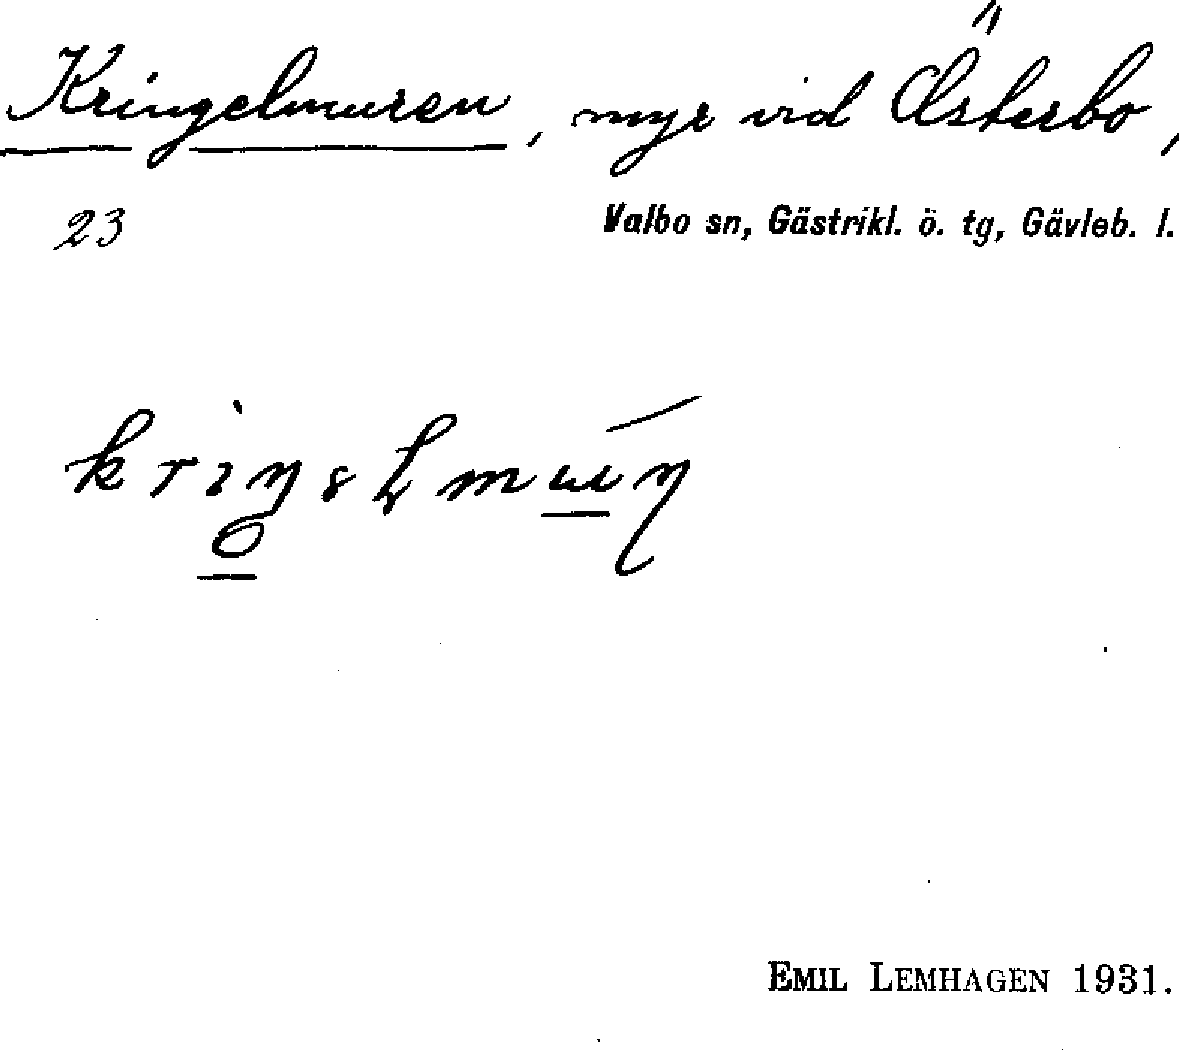 Kringelmuren, myr vid Österbo,
23
Valbo sn, Gästrikl. ö. tg, Gävleb. l.
EMIL LEMHAGEN 1931.